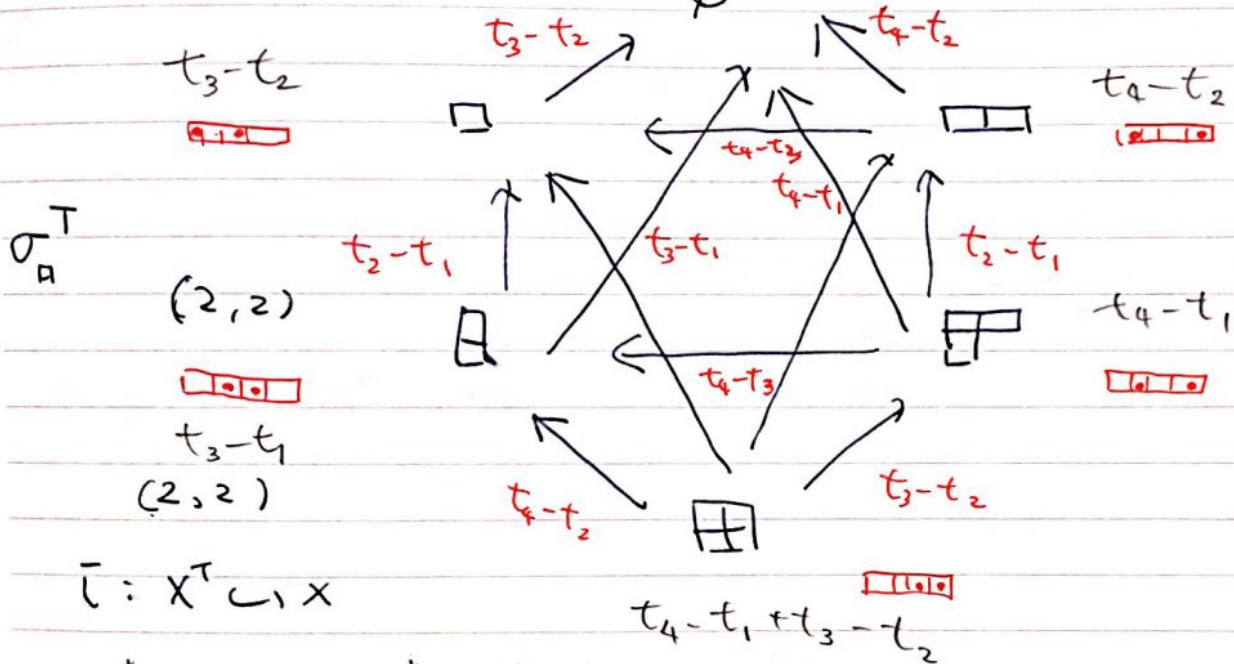 t₃-t₂
t₄-t₂
t₃-t₂
t₄-t₂
t₄-t₃
t₄-t₁
σ_□^T
t₂-t₁
t₃-t₁
t₂-t₁
(2,2)
t₄-t₁
t₄-t₃
t₃-t₁
(2,2)
t₄-t₂
t₃-t₂
i: X^T ↪ X
t₄-t₁+t₃-t₂